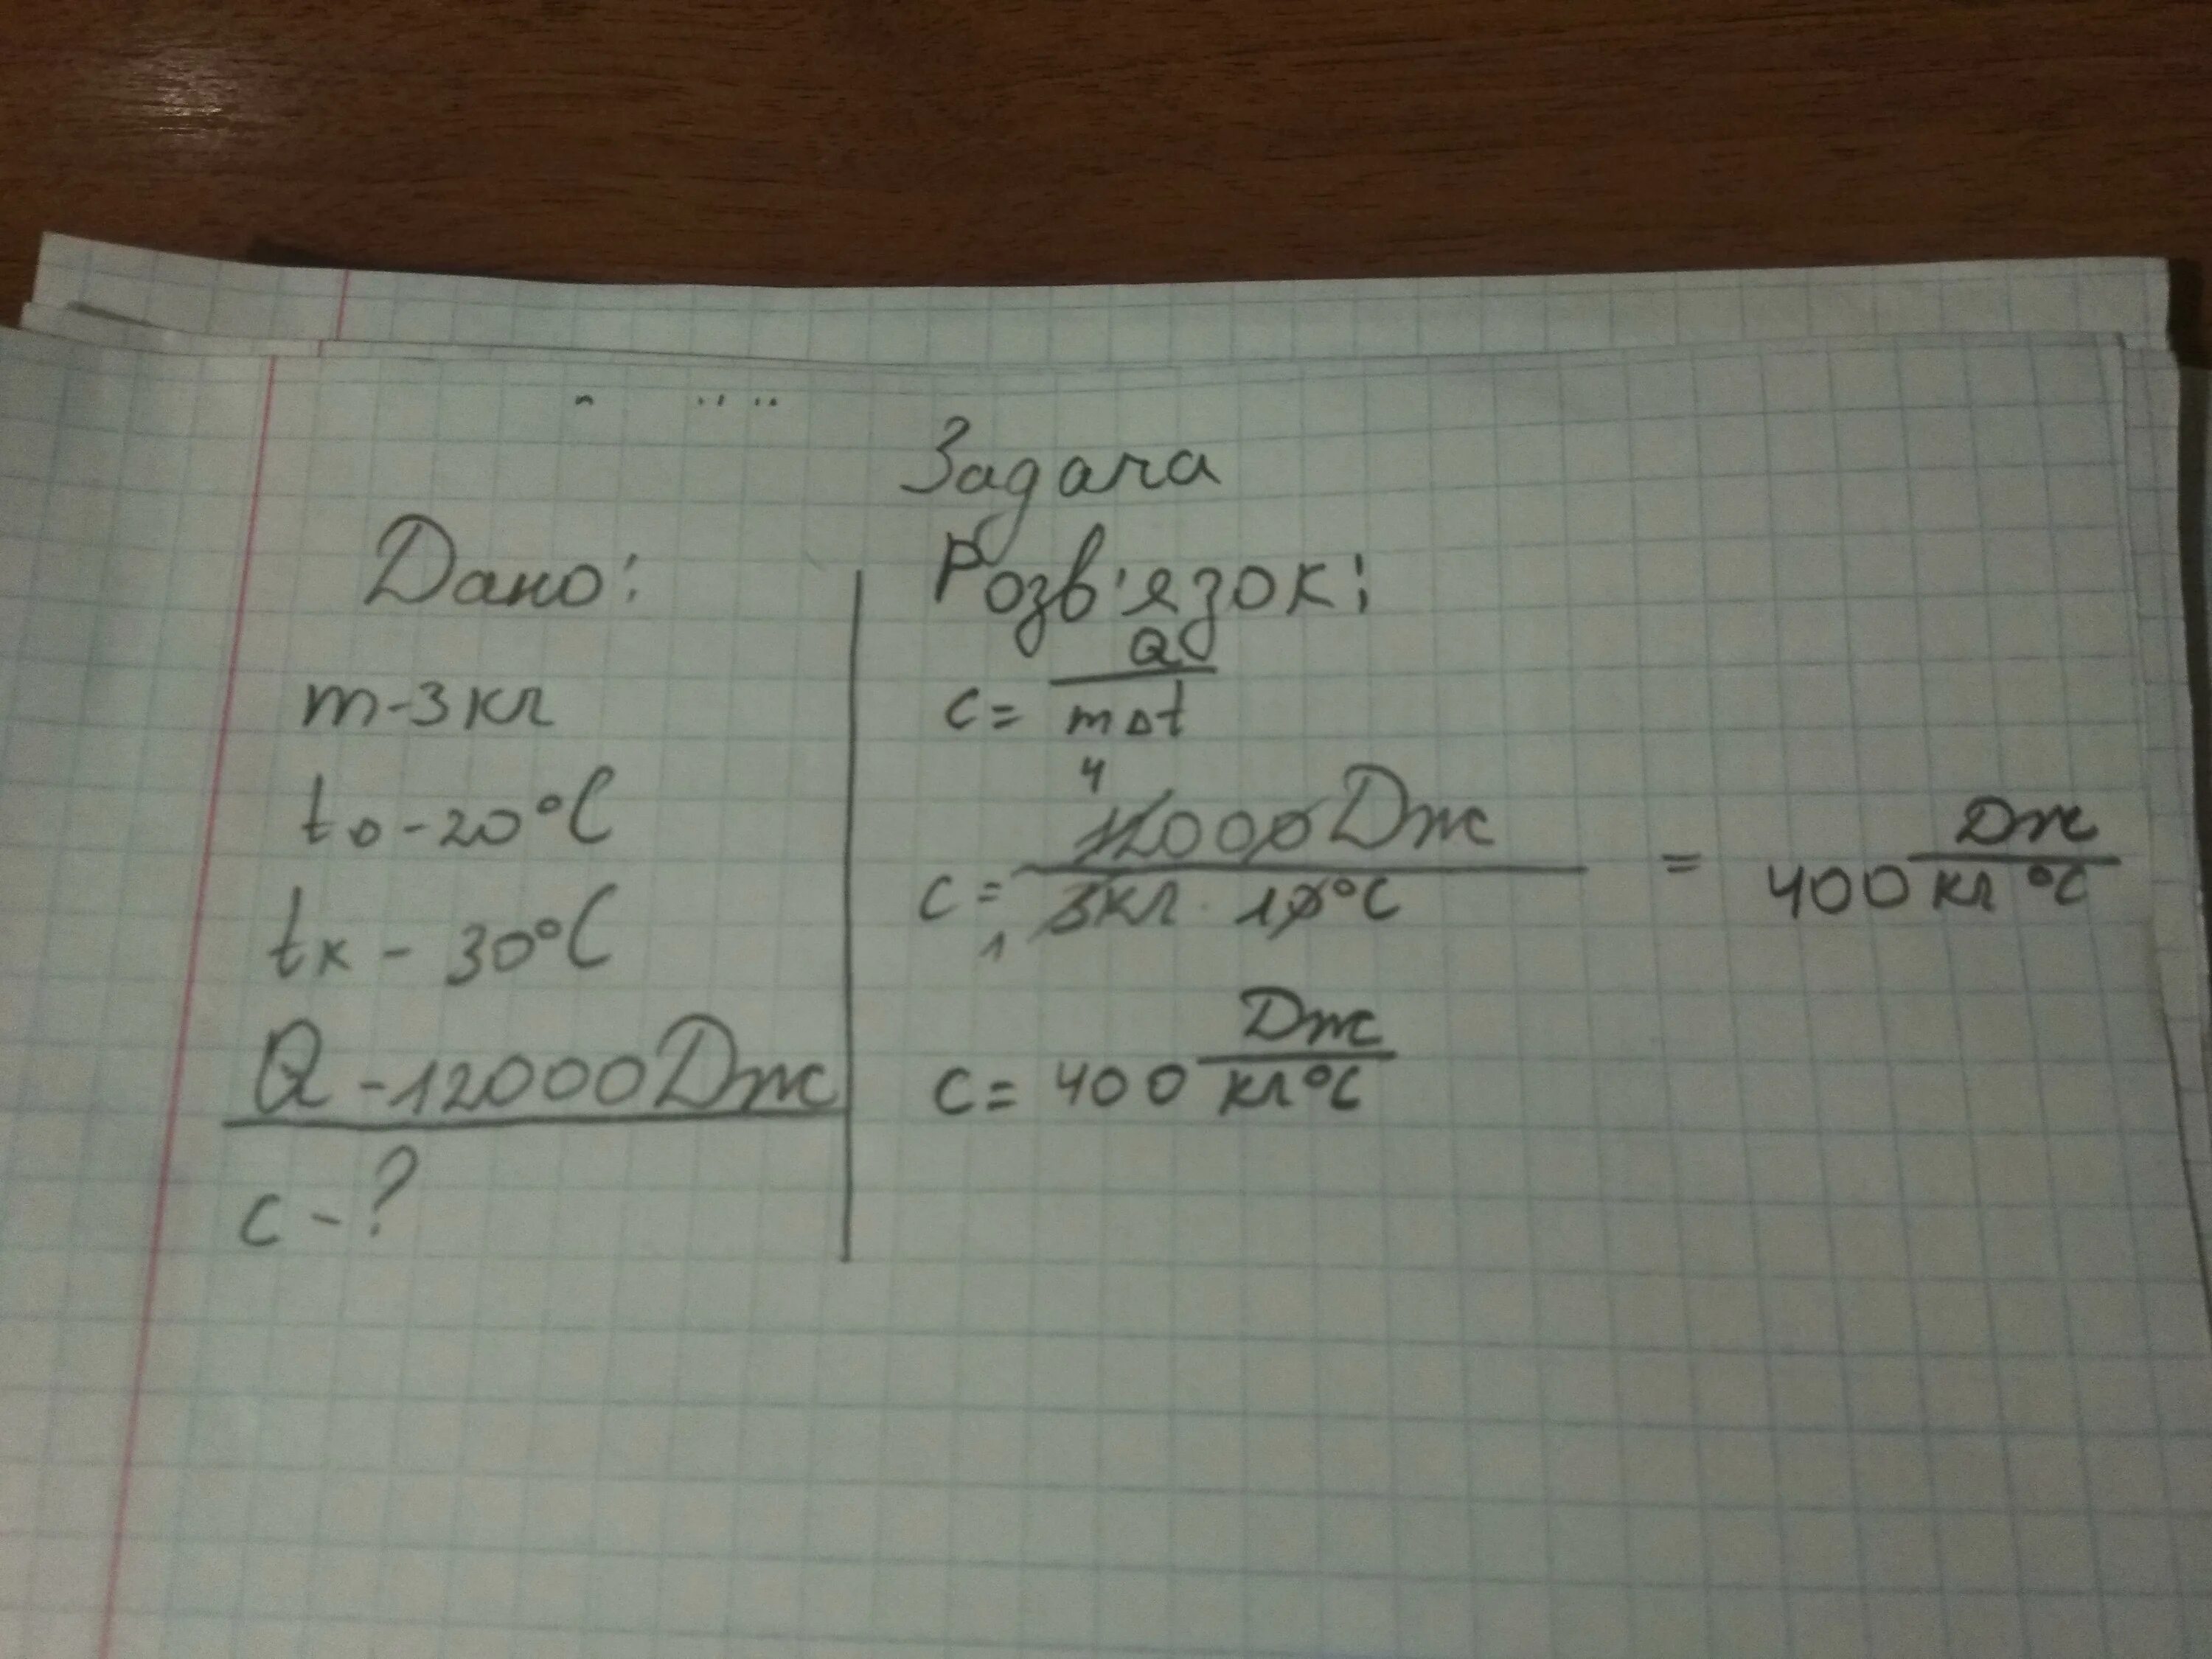 Задача
Дано:
m-3кг
t₀-20°C
tк - 30°C
Q -12000Дж
c-?
Розв'язок:
c= Q / mΔt
c= 12000Дж / 3кг · 10°C = 400 Дж / кг °C
4
1
c= 400 Дж / кг°C